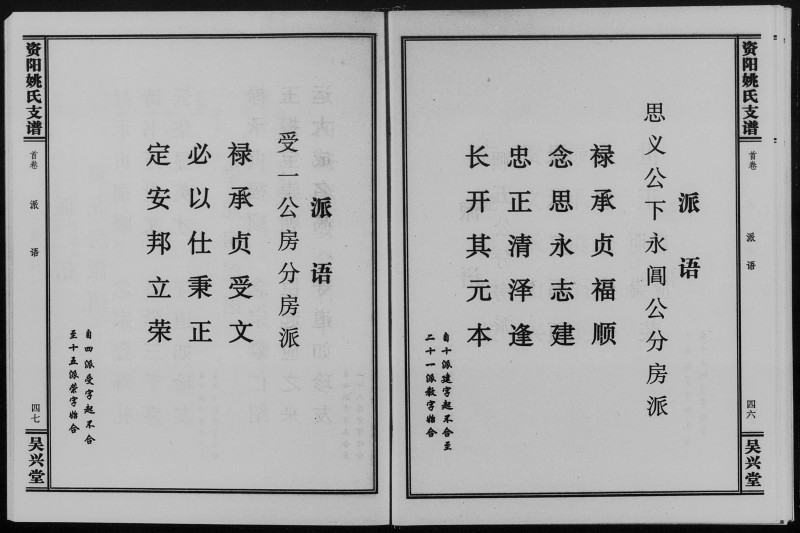 资阳姚氏支谱
首卷
派语
四六
吴兴堂
派语
思义公下永闾公分房派
禄承贞福顺
念思永志建
忠正清泽逢
长开其元本
自十派建字起不合至
二十一派教字始合
派语
受一公房分房派
禄承贞受文
必以仕秉正
定安邦立荣
自四派受字起不合
至十五派荣字始合
资阳姚氏支谱
首卷
派语
四七
吴兴堂